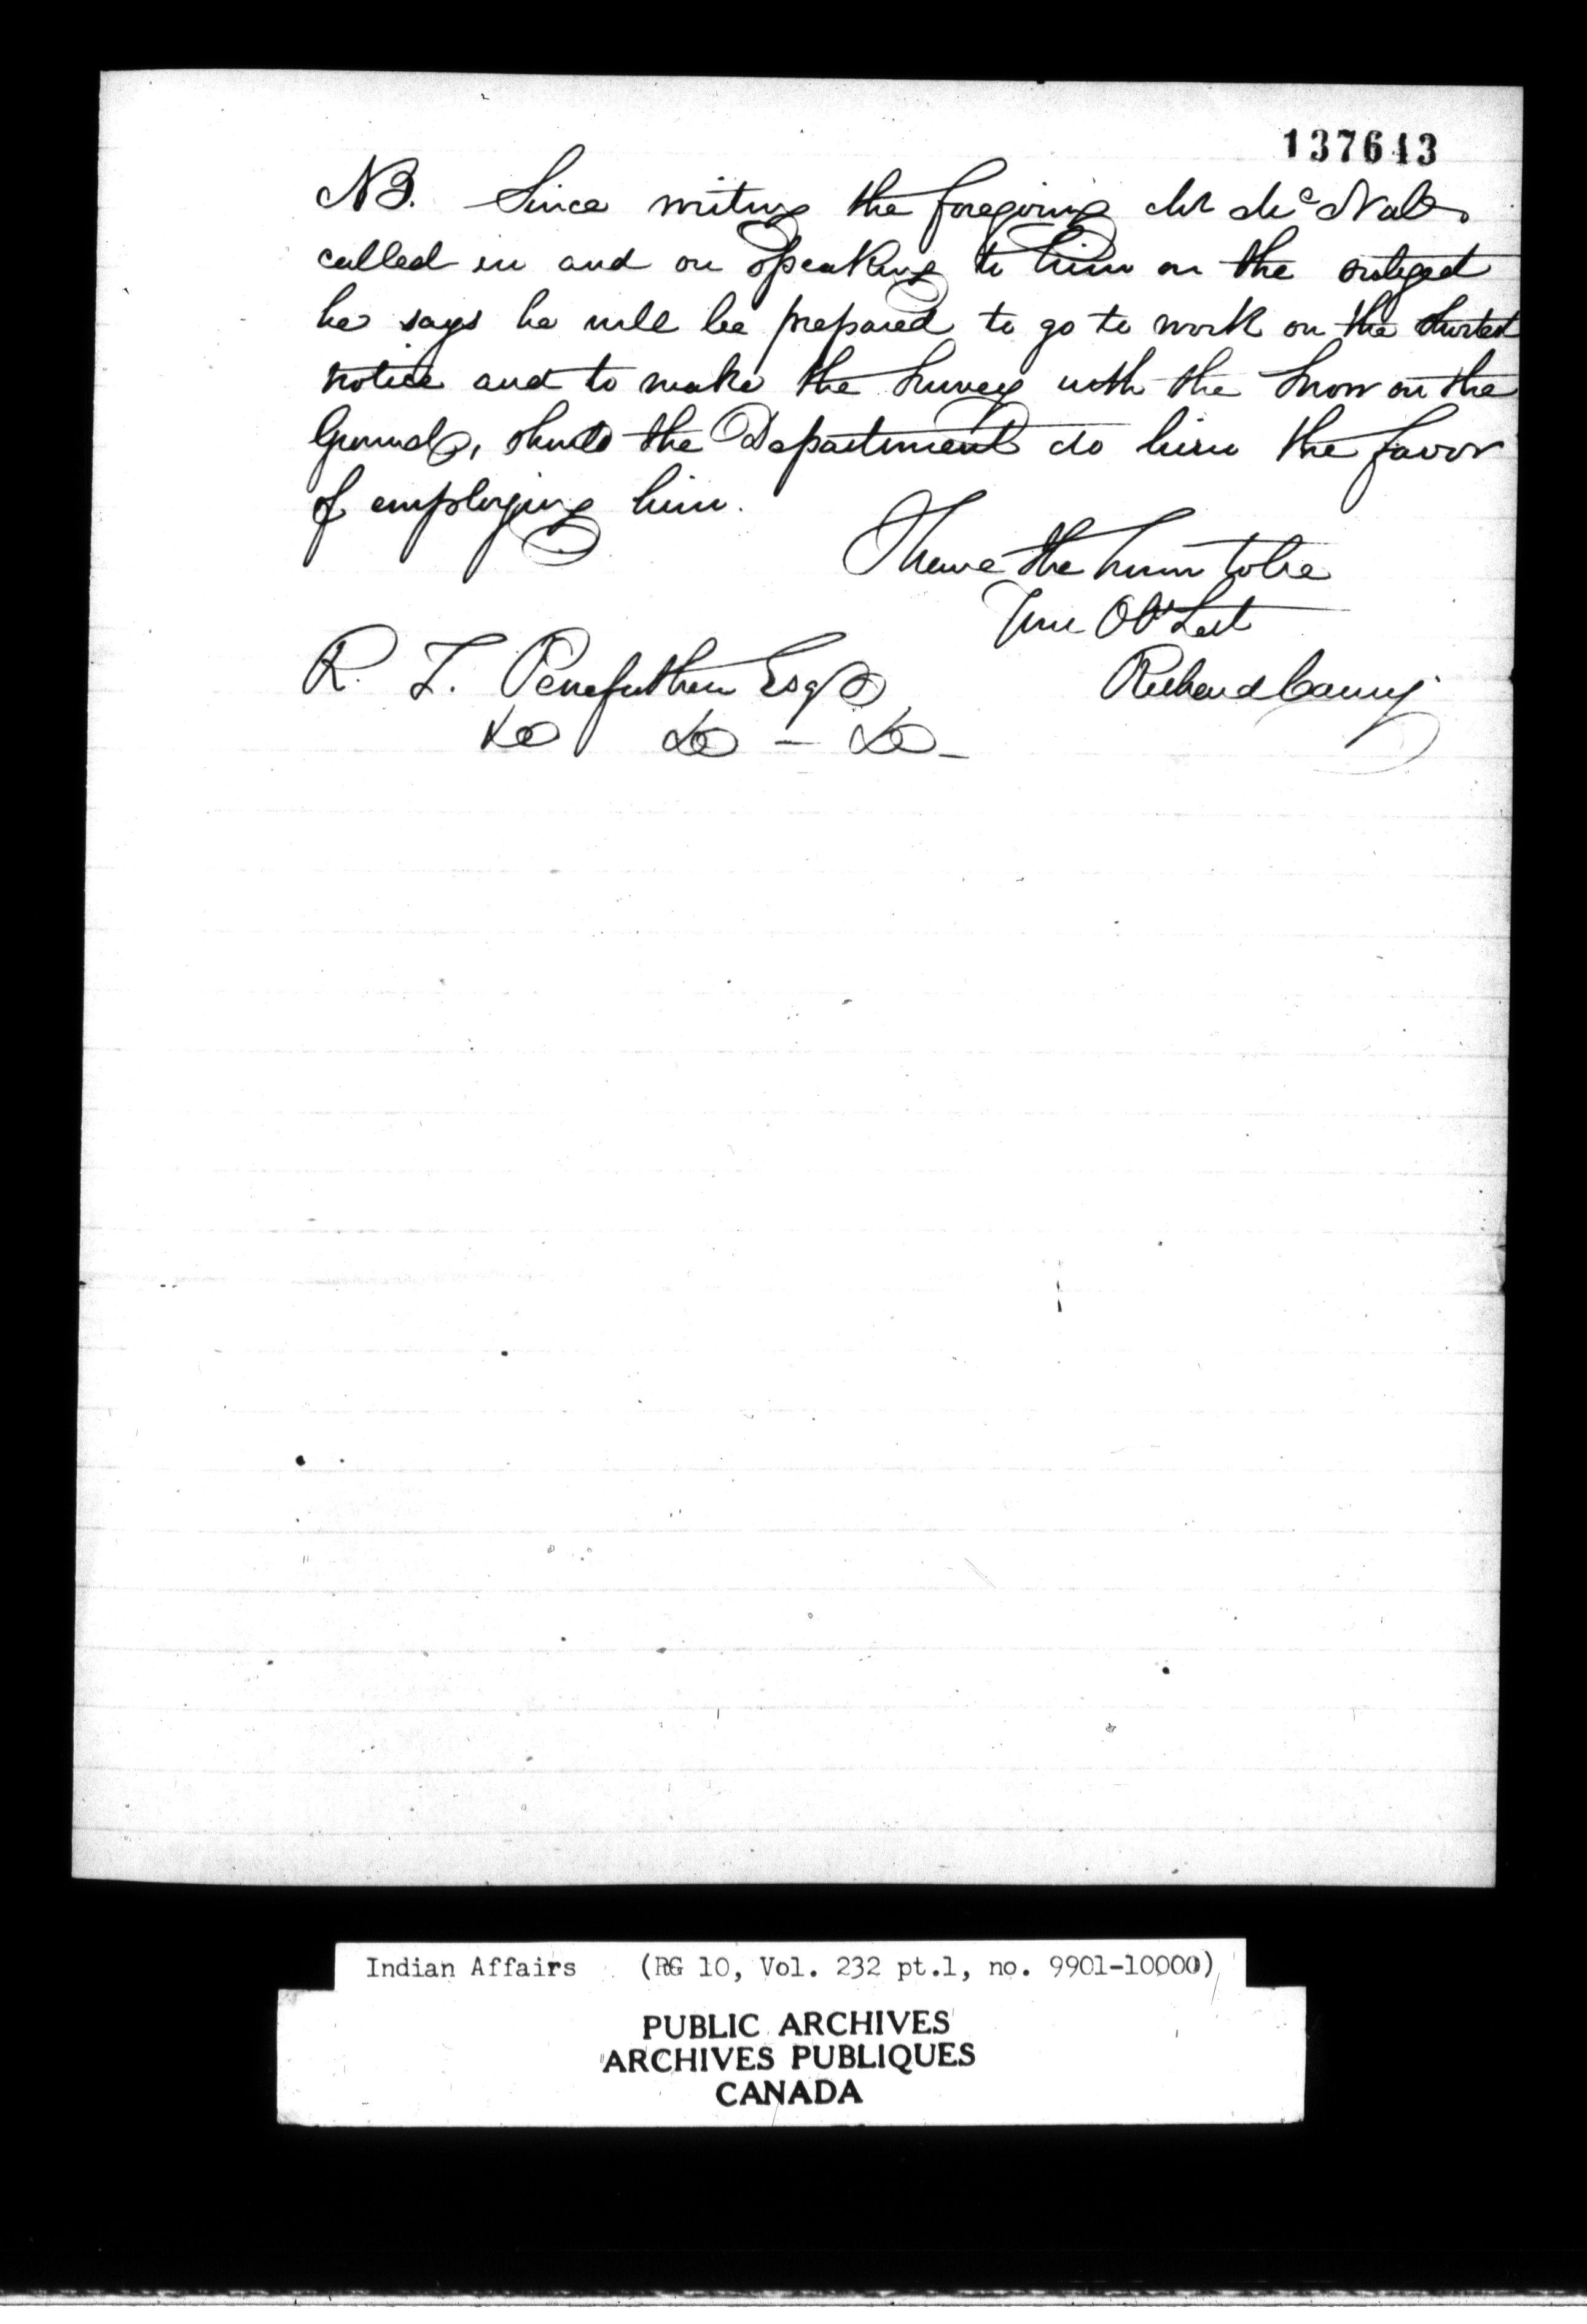 137643
NB. Since writing the foregoing Mr McNab
called in and on speaking to him on the subject
he says he will be prepared to go to work on the shortest
notice and to make the Survey with the Snow on the
Ground, should the Department do him the favor
of employing him.
I have the honor to be
Your Obt Sert
R. T. Pennefather Esqr
Richard Carney
&c &c - &c -
Indian Affairs (RG 10, Vol. 232 pt.1, no. 9901-10000)
PUBLIC ARCHIVES
ARCHIVES PUBLIQUES
CANADA